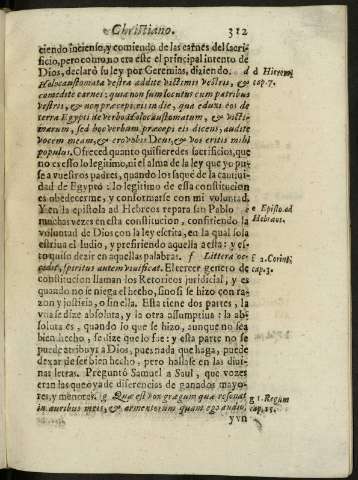 Christiano. 312
ciendo incienso, y comiendo de las carnes del sacri-
ficio, pero como no era este el principal intento de
Dios, declarò su ley por Geremias, diziendo. d
d Hierem.
cap. 7.
Holocaustomata vestra addite victimis vestris, &
comedite carnes: quia non sum locutus cum patribus
vestris, & non præcepi eis in die, qua eduxi eos de
terra Egypti de verbo Holocaustomatum, & victi-
marum, sed hoc verbum præcepi eis dicens, audite
vocem meam, & ero vobis Deus, & vos eritis mihi
populus. Ofreced quanto quisieredes sacrificios, que
no es esso lo legitimo, ni el alma de la ley que yo pu-
se a vuestros padres, quando los saquè de la cautiui-
dad de Egypto: lo legitimo de essa constitucion
es obedecerme, y conformarse con mi voluntad.
Y en la epistola ad Hebreos repara san Pablo e
e Episto. ad
Hebraos.
muchas vezes en esta constitucion, confiriendo la
voluntad de Dios con la ley escrita, en la qual sola
estriua el Iudio, y prefiriendo aquella a esta: y es-
to quiso dezir en aquellas palabras. f Littera oc-
f 2. Corint.
cap. 3.
cidit, spiritus autem viuificat. El tercer genero de
constitucion llaman los Retoricos juridicial, y es
quando no se niega el hecho, sino si se hizo con ra-
zon y justicia, o sin ella. Esta tiene dos partes, la
vna se dize absoluta, y la otra assumptiua: la ab-
soluta es, quando lo que se hizo, aunque no sea
bien hecho, se dize que lo fue: y esta parte no se
puede atribuyr a Dios, pues nada que haga, puede
dexar de ser bien hecho, pero hallase en las diui-
nas letras. Preguntò Samuel a Saul, que vozes
eran las que oya de diferencias de ganados mayo-
res, y menores. g Quæ est vox gregum quæ resonat
g 1. Regum
cap. 15.
in auribus meis, & armentorum quam ego audio,
yvn